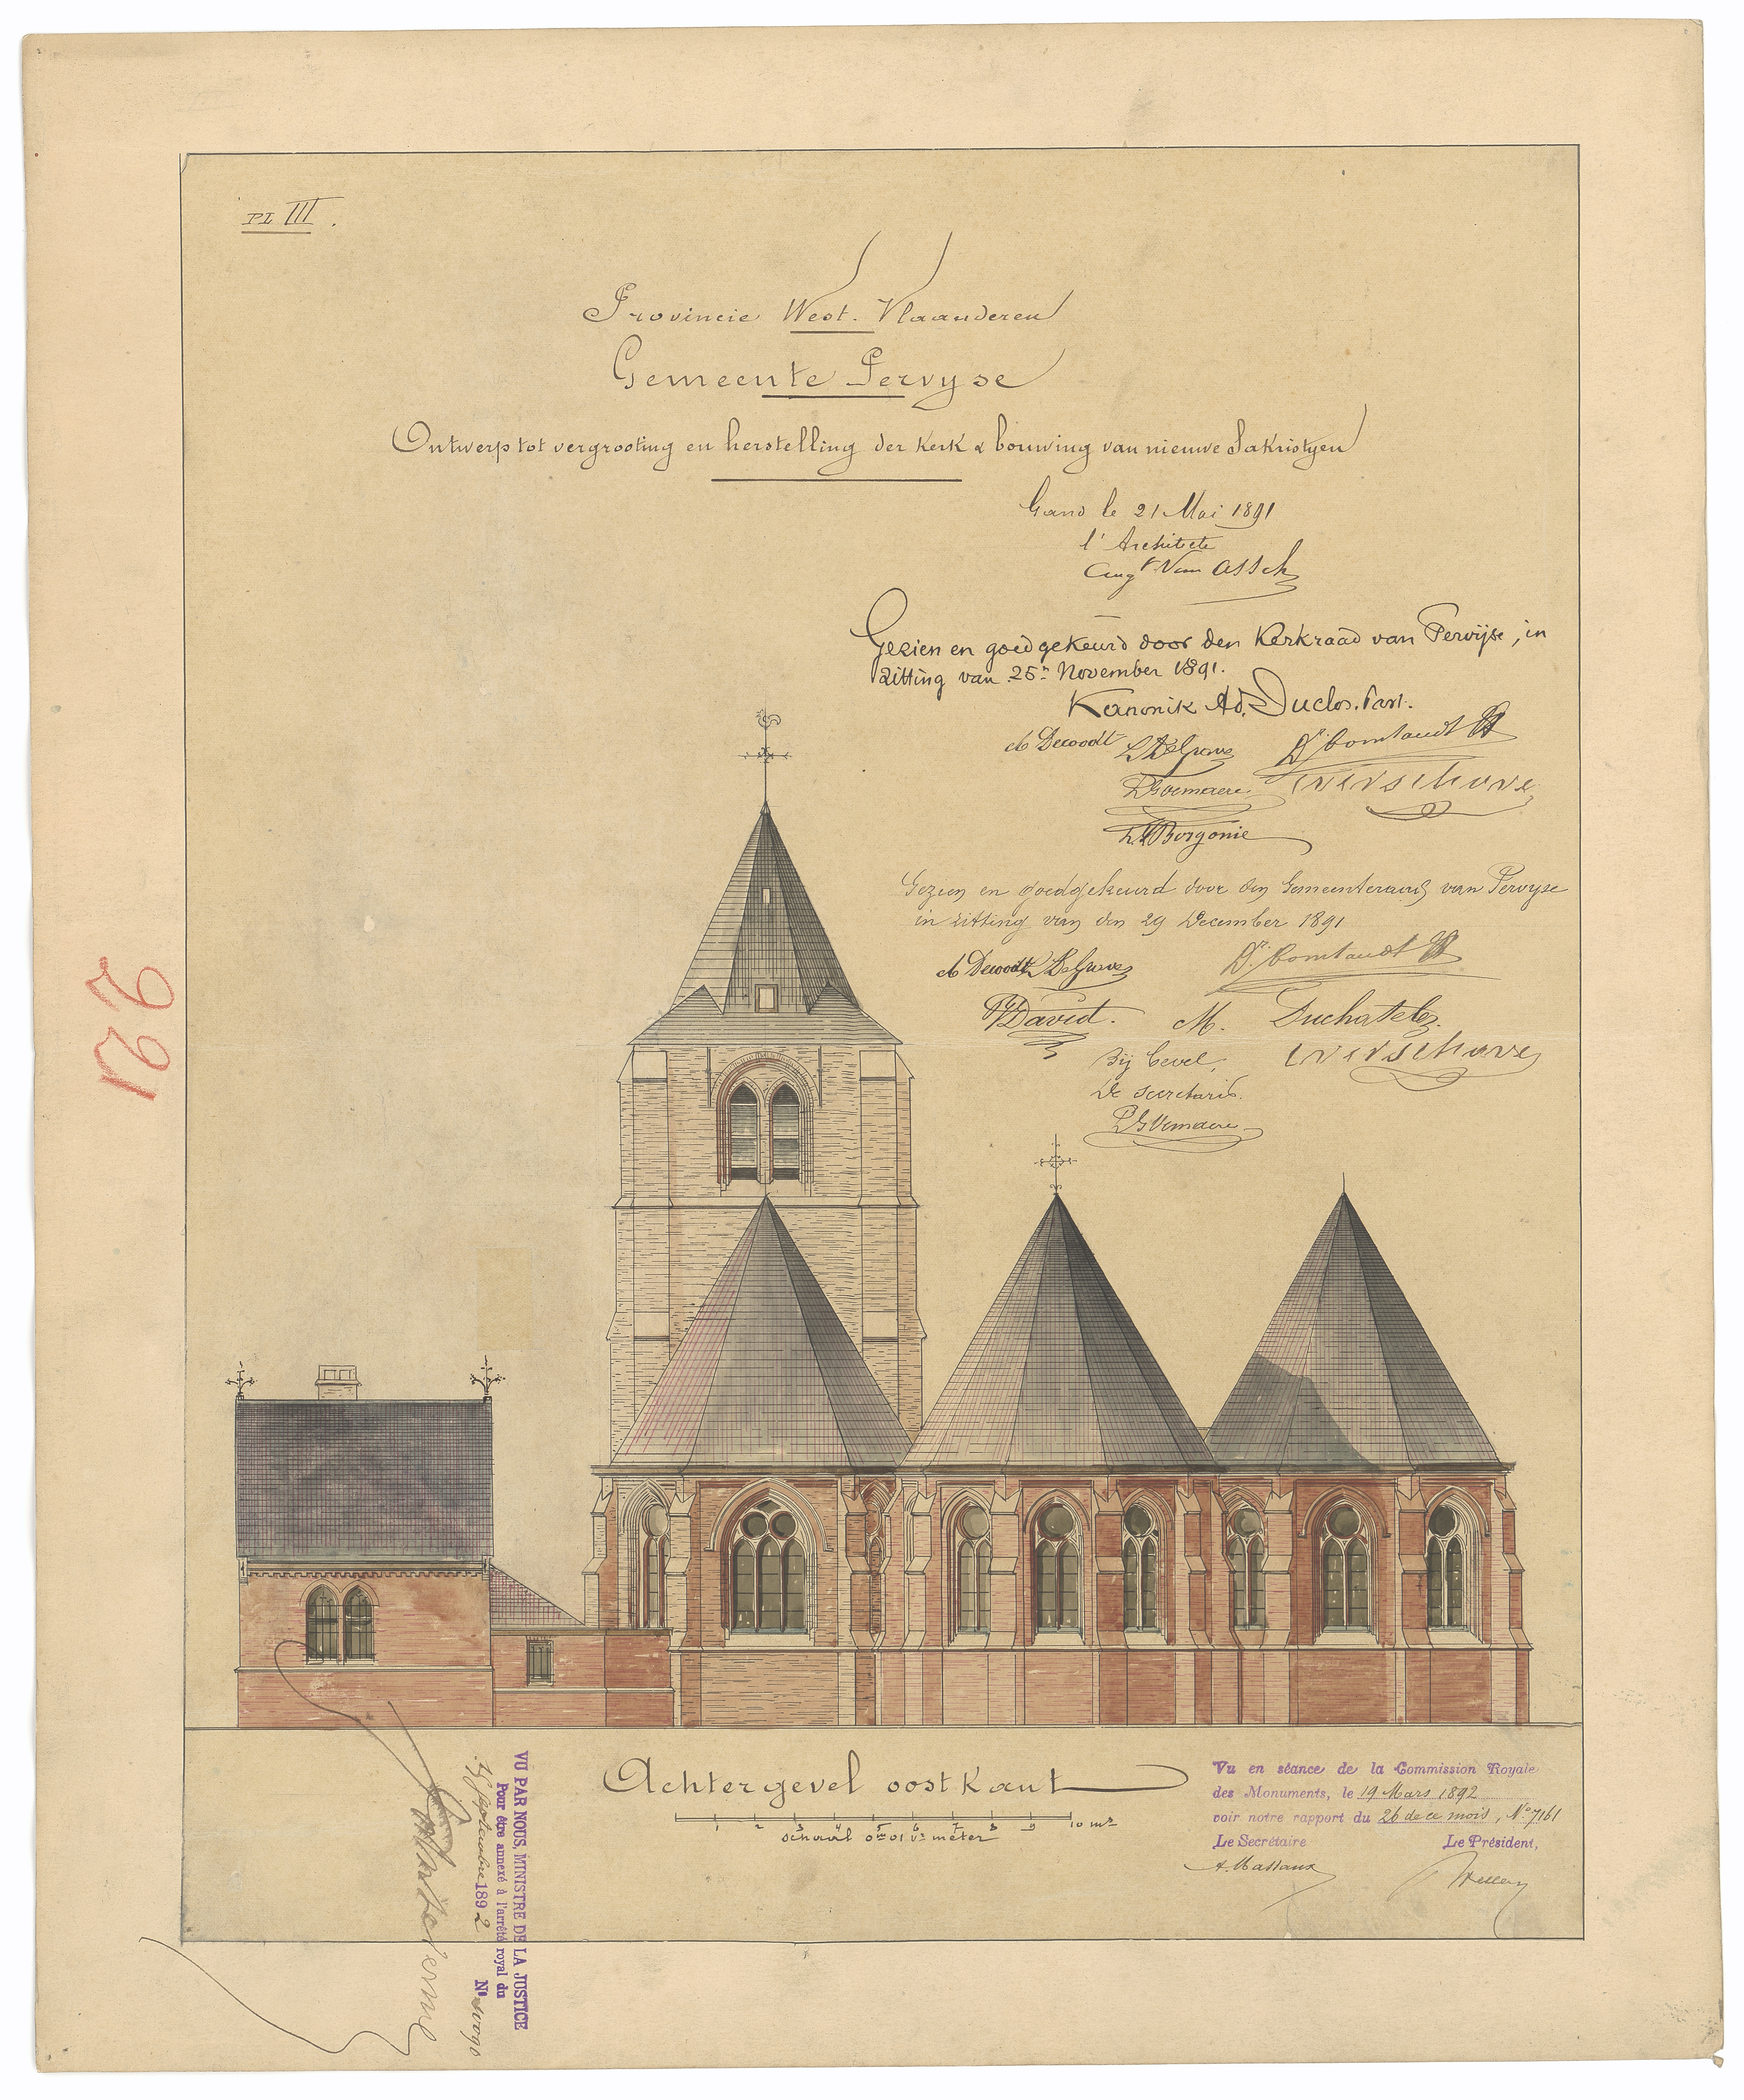 PL III.
Provincie West-Vlaanderen
Gemeente Pervyse
Ontwerp tot vergrooting en herstelling der Kerk & bouwing van nieuwe Sakristyen
Gand le 21 Mai 1891
l'Architecte
Augt Van Assche
Gezien en goedgekeurd door den Kerkraad van Pervijse, in
zitting van 25n November 1891.
Kanonik Ad. Duclos. Past.
Dewoodt
L. DeGrave
P. Goemaere
Borgonie
Gezien en goedgekeurd door den Gemeenteraad van Pervyse
in zitting van den 29 December 1891
Dewoodt L. DeGrave
David. M. Duchatelez
Bij bevel,
De secretaris.
P. Goemaere
Achtergevel oostkant
1 2 3 4 5 6 7 8 9 10 mr
schaal 0m01 vr meter
Vu en séance de la Commission Royale
des Monuments, le 19 Mars 1892
voir notre rapport du 26 de ce mois, No 7161
Le Secrétaire Le Président,
A. Massaux
VU PAR NOUS, MINISTRE DE LA JUSTICE
Pour être annexé à l'arrêté royal du
Septembre 1892 No